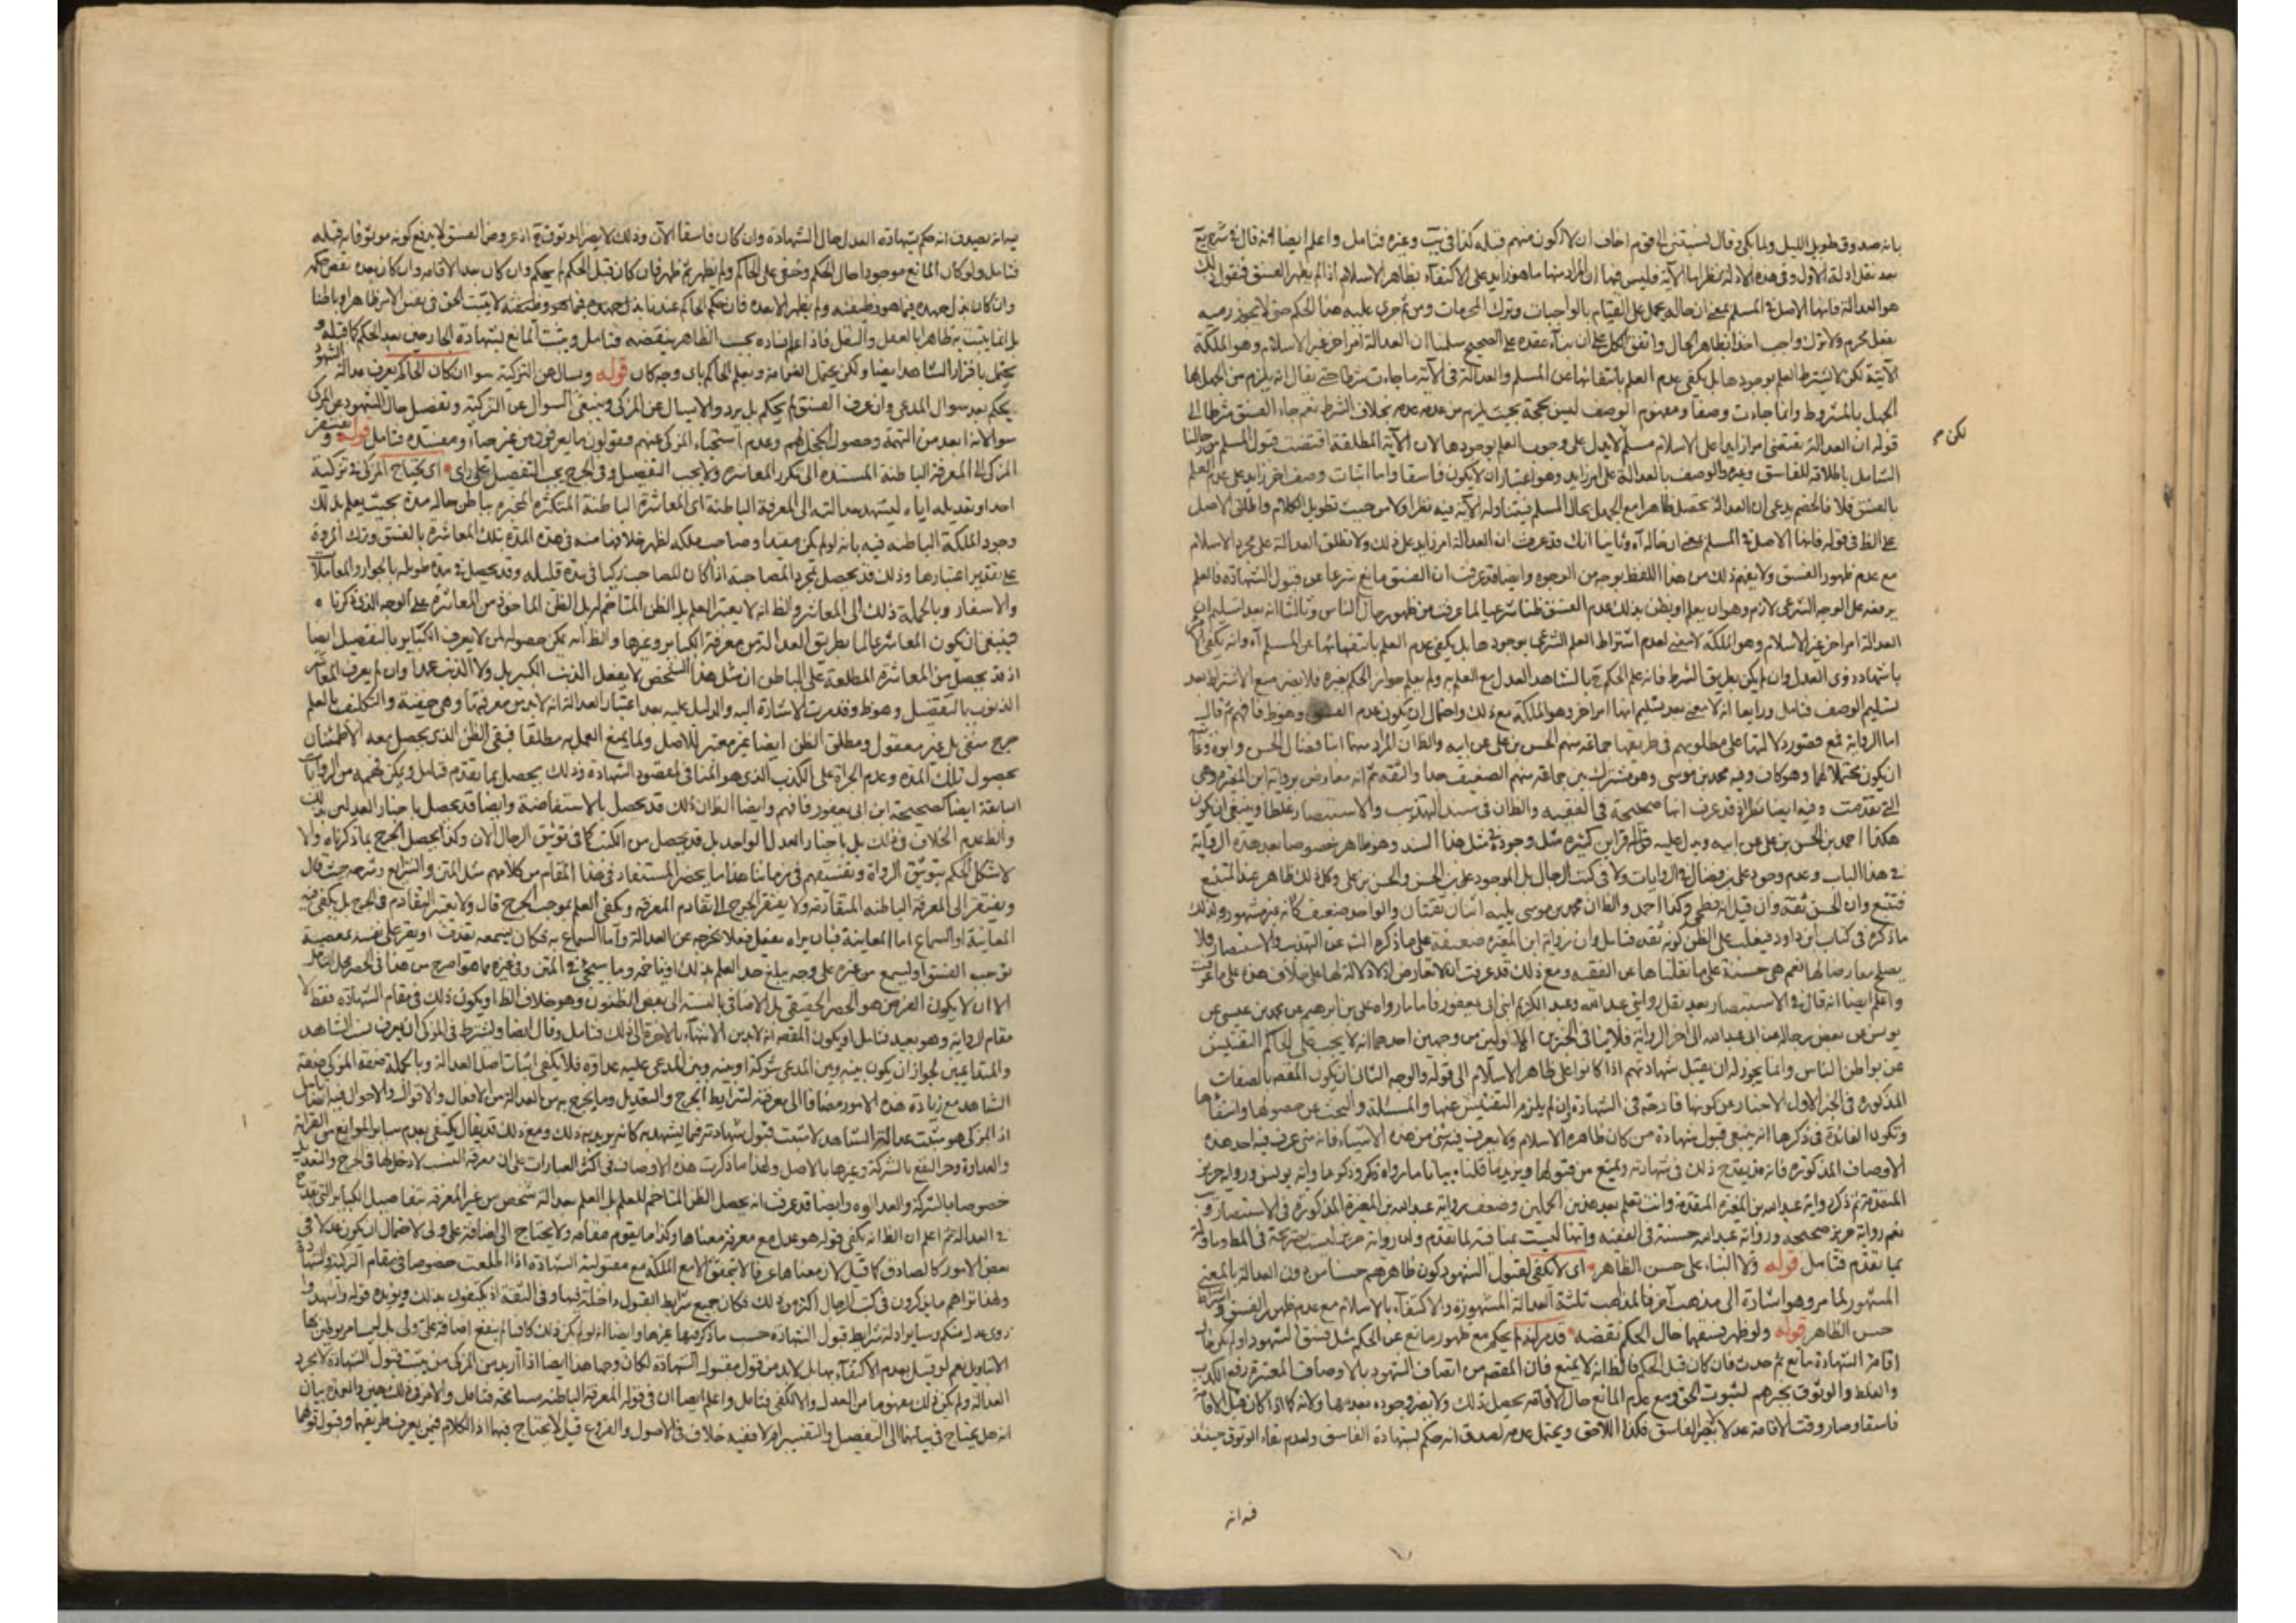 بانه صدوق طويل الليل
بعد نقل ادلة الاول وفي هذه الادلة نظر اما الآية فليس فيها ان المراد منها ما هو زايد على الاكتفاء بظاهر الاسلام اذا لم يظهر الفسق فنقول ذلك
هو العدالة فانها الاصل في المسلم بمعنى ان حاله يحمل على القيام بالواجبات وترك المحرمات ومن ثم جرى عليه هذا الحكم حتى لا يجوز رميه
بفعل محرم ولا ترك واجب اخذا بظاهر الحال واتفق الكل على ان بناء عقده على الصحيح سلمنا ان العدالة امر اخر غير الاسلام وهو الملكة
الآتية لكن لا يشترط العلم بوجودها بل يكفى عدم العلم بانتفائها عن المسلم والعدالة في الآية ما جاءت شرطا حتى يقال انه يلزم من الجهل بها
الجهل بالمشروط وانما جاءت وصفا ومفهوم الوصف ليس بحجة بحيث يلزم من عدمه عدمه بخلاف الشرط نعم جاء الفسق شرطا الى
قوله ان العدالة تقتضي امرا زايدا على الاسلام مسلم لا يدل على وجوب العلم بوجودها لان الآية المطلقة اقتضت قبول المسلم من رجالنا
لكن
الشامل باطلاقه للفاسق وغيره والوصف بالعدالة على امر زايد وهو اعتبار ان لا يكون فاسقا واما اثبات وصف اخر زايد على عدم العلم
بالفسق فلا فالخصم يدعى ان العدالة تحصل ظاهرا مع الجهل بحال المسلم فيتناوله الآية فيه نظر اولا من حيث تطويل الكلام واطلق الاصل
على الظ في قوله فانها الاصل في المسلم بمعنى ان حاله اه وثانيا انك قد عرفت ان العدالة امر زايد على ذلك ولا تطلق العدالة على مجرد الاسلام
مع عدم ظهور الفسق ولا يفهم ذلك من هذا اللفظ بوجه من الوجوه وايضا قد عرفت ان الفسق مانع شرعا عن قبول الشهادة فالعلم
برفعه على الوجه الشرعي لازم وهو ان يعلم او يظن بذلك عدم الفسق ظنا شرعيا لما عرفت من ظهور حال الناس وثالثا انه بعد تسليم ان
العدالة امر اخر غير الاسلام وهو الملكة لا معنى لعدم اشتراط العلم الشرعي بوجودها بل يكفى عدم العلم بانتفائها عن المسلم اه وانه يكفى
باشهاد ذوى العدل وان لم يكن بطريق الشرط فانه علم الحكم بالشاهد العدل مع العلم به ولم يعلم جواز الحكم بغيره فلا يضر منع الاشتراط بعد
تسليم الوصف فتامل ورابعا انه لا معنى بعد تسليم انها امر اخر وهو الملكة مع ذلك واحتمال ان يكون عدم الفسق وهو ظ فافهم ثم قال
اما الرواية فمع قصور دلالتها على مطلوبهم في طريقها جماعة منهم الحسن بن علي عن ابيه والظ ان المراد بهما ابنا فضال الحسن وابوه وعا
ان يكون محتملا لهما وهو كاف وفيه محمد بن موسى وهو مشترك بين جماعة منهم الضعيف جدا والثقة ثم انه معارض برواية ابن المغيرة وهى
التي تقدمت وفيه ايضا نظر اذ قد عرفت انها صحيحة في الفقيه والظ ان في سند التهذيب والاستبصار غلطا وينبغي ان يكون
هكذا احمد بن الحسن بن علي عن ابيه ويدل عليه قراين كثيرة مثل وجود مثل هذا السند وهو ظاهر خصوصا بعد هذه الرواية
في هذا الباب وعدم وجود علي بن فضال في الروايات ولا في كتب الرجال بل الموجود علي بن الحسن والحسن بن علي وكل ذلك ظاهر عند المتتبع
فتتبع وان الحسن ثقة وان قيل انه فطحى وكذا احمد والظ ان محمد بن موسى يليه اثنان ثقتان والواحد ضعيف كانه غير مشهور ولذلك
ما ذكره في كتاب ابن داود فيغلب على الظن كونه ثقة فتامل وان رواية ابن المغيرة ضعيفة على ما ذكره الشيخ في التهذيب والاستبصار فلا
يصلح معارضا لها نعم هي حسنة على ما نقلناها عن الفقيه ومع ذلك قد عرفت ان لا تعارض اذ لا دلالة لها على خلاف هذه على ما عرفت
واعلم ايضا انه قال في الاستبصار بعد نقل روايتي عبد الله وعبد الكريم ابني ابى يعفور فاما ما رواه علي بن ابراهيم عن محمد بن عيسى عن
يونس عن بعض رجاله عن ابى عبد الله الى اخر الرواية فلا ينافى الخبرين الاولين من وجهين احدهما انه لا يجب على الحاكم التفتيش
عن بواطن الناس وانما يجوز له ان يقبل شهادتهم اذا كانوا على ظاهر الاسلام الى قوله والوجه الثاني ان يكون المقصود بالصفات
المذكورة في الخبر الاول الاخبار عن كونها قادحة في الشهادة وان لم يلزم التفتيش عنها والمسئلة والبحث عن حصولها وانتفائها
وتكون الفائدة في ذكرها انه ينبغي قبول شهادة من كان ظاهره الاسلام ولا يعرف فيه شئ من هذه الاشياء فانه متى عرف فيه احد هذه
الاوصاف المذكورة فانه يقدح ذلك في شهادته ويمنع من قبولها ويزيد ما قلناه بيانا ما رواه وذكر رواية يونس ورواية حريز
المتقدمة ثم ذكر رواية عبد الله بن المغيرة المقدمة وانت تعلم بعد هذين الحملين وضعف رواية عبد الله بن المغيرة المذكورة في الاستبصار
نعم رواية حريز صحيحة ورواية عبد الله حسنة في الفقيه وانها ليست منافية لما تقدم وان رواية حريز ليست صريحة في المط
بما تقدم فتامل قوله ولا البناء على حسن الظاهر اى لا يكفى لقبول الشهود كون ظاهرهم حسنا من دون العدالة بالمعنى
المشهور لما مر وهو اشارة الى مذهب آخر فالمذاهب ثلثة العدالة المشهورة والاكتفاء بالاسلام مع عدم ظهور الفسق و
حسن الظاهر قوله ولو ظهر فسقهما حال الحكم نقضه قد مر انه لم يحكم مع ظهور مانع عن الحكم مثل فسق الشهود ولو لم يكن حال
اقامة الشهادة مانع ثم حدث فان كان قبل الحكم فالظ انه لا يمنع فان المقصود من اتصاف الشهود بالاوصاف المعتبرة رفع الكذب
والغلط والوثوق بخبرهم لثبوت الحق ومع عدم المانع حال الاقامة يحصل ذلك ولا يضر وجوده بعدها ولانه كما اذا كان قبل الاقامة
فاسقا وصار وقت الاقامة عدلا فكذا اللاحق ويحتمل عدمه لصدق انه حكم بشهادة الفاسق ولعدم بقاء الوثوق حينئذ
فتامل ولو كان المانع موجودا حال الحكم وخفى على الحاكم ولم يظهر ثم ظهر فان كان قبل الحكم لم يحكم وان كان بعد الاقامة وان كان بعده نقض حكمه
وان كان بذل جهده فيما هو وظيفته ولم يظهر الا بعده فان حكم الحاكم عندنا بذل جهده فيما هو وظيفته لا يثبت الحق في نفس الامر ظاهرا وباطنا
بل انما يثبت به ظاهرا بالعقل والنقل فاذا علم فساده بحسب الظاهر ينقضه فتامل ويثبت المانع بشهادة الجارحين بعد الحكم كما قبله و
يحتمل باقرار الشاهد ايضا ولكن يحتمل الغرامة وبعلم الحاكم باى وجه كان قوله ويسال عن التزكية سواء ان كان الحاكم يعرف عدالة الشهود
يحكم بعد سوال المدعى وان عرف الفسق لم يحكم بل يرد والا يسال عن المزكى وينبغي السوال عن التزكية وتفصيل حال الشهود عن المزكى
المزكى الى المعرفة الباطنة المستندة الى تكرر المعاشرة ولا يجب التفصيل وفي الجرح يجب التفصيل على راى اى يحتاج المزكى في تزكية
احد وتعديله اياه ليشهد بعدالته الى المعرفة الباطنة اى المعاشرة الباطنة المتكثرة المخبرة بباطن حاله مدة بحيث يعلم بذلك
وجود الملكة الباطنة فيه بانه لو لم يكن معتمدا وصاحب ملكة لظهر خلافها منه في هذه المدة بتلك المعاشرة بالفسق وترك المروة
على تقدير اعتبارها وذلك قد يحصل بمجرد المصاحبة اذا كان المصاحب زكيا في مدة قليلة وقد يحصل في مدة طويلة بالجوار والمعاملات
والاسفار وبالجملة ذلك الى المعاشر والظ انه لا يعتبر العلم بل الظن المتاخم له بل الظن الماخوذ من المعاشرة على الوجه الذي ذكرنا
فينبغي ان يكون المعاشر عالما بطريق العدالة من معرفة الكباير وغيرها والظ انه يمكن حصوله لمن لا يعرف الكباير بالتفصيل ايضا
اذ قد يحصل من المعاشرة المطلعة على الباطن ان مثل هذا الشخص لا يفعل الذنب الكبير بل ولا الذنب عمدا وان لم يعرف المعاشر
الذنوب بالتفصيل وهو ظ وقد مرت الاشارة اليه والدليل عليه بعد اعتبار العدالة انه لا بد من معرفتها وهي خفية والتكليف بالعلم
حرج منفى بل غير معقول ومطلق الظن ايضا غير معتبر للاصل ولما يمنع العمل به مطلقا فبقى الظن الذي يحصل معه الاطمئنان
بحصول تلك الملكة وعدم الجراة على الكذب الذي هو المنافى لمقصود الشهادة وذلك يحصل بما تقدم فتامل ويمكن فهمه من الروايات
السابقة ايضا كصحيحة ابن ابى يعفور فافهم وايضا الظ ان ذلك قد يحصل بالاستفاضة وايضا قد يحصل باخبار العدلين بذلك
والظ عدم الخلاف في ذلك بل باخبار العدل الواحد بل قد يحصل من الكتب كما في توثيق الرجال الان وكذا يحصل الجرح بما ذكرناه ولا
لاشكل الحكم بتوثيق الرواة وتفسيقهم في زماننا هذا ما يحضر المستفاد في هذا المقام من كلامهم مثل المتن والشرايع وشرحه حيث قال
ويفتقر الى المعرفة الباطنة المتقادمة ولا يفتقر الجرح الى تقادم المعرفة ويكفى العلم بموجب الجرح قال ولا يعتبر التقادم في الجرح بل يكفى فيه
المعاينة او السماع اما المعاينة فبان يراه يفعل فعلا يخرجه عن العدالة واما السماع به فكان يسمعه يقذف او يقر على نفسه بمعصية
توجب الفسق او يسمع من غيره على وجه يبلغ حد العلم بذلك او يتاخمه وما سيجئ في المتن وفي غيره مما هو اصرح من هذا في الحصر محل التامل
الا ان لا يكون الغرض هو الحصر الحقيقي بل الاضافي بالنسبة الى بعض الظنون وهو خلاف الظ او يكون ذلك في مقام الشهادة فقط لا
مقام الرواية وهو بعيد فتامل او يكون المقصود انه لا بد من الانتهاء بالاخرة الى ذلك فتامل وقال ايضا ويشترط في المزكى ان يعرف نسب الشاهد
والمتداعيين لجواز ان يكون بينه وبين المدعى شركة او بينه وبين المدعى عليه عداوة فلا يكفى اثبات اصل العدالة وبالجملة صفة المزكى صفة
الشاهد مع زيادة هذه الامور مضافا الى معرفته لشرايط الجرح والتعديل وما يخرج به من العدالة من الافعال والاقوال والاحوال فيه تامل
اذ المزكى هو مثبت عدالة الشاهد لا مثبت قبول شهادته فيما يشهد به كانه يريد به ذلك ومع ذلك قد يقال يكتفى بعدم ساير الموانع من القرابة
والعداوة وجر النفع بالشركة وغيرها بالاصل ولهذا ما ذكرت هذه الاوصاف في اكثر العبارات على ان معرفة النسب لا دخل لها في الجرح والتعديل
خصوصا بالشركة والعداوة وايضا قد عرفت انه يحصل الظن المتاخم للعلم بل العلم بعدالة شخص من غير المعرفة بتفاصيل الكباير التي تقدح
في العدالة ثم اعلم ان الظ انه يكفى قوله هو عدل مع معرفة معناها وكذا ما يقوم مقامه ولا يحتاج الى اضافة علي ولي لاحتمال ان يكون عدلا في
بعض الامور كالصادق كما قيل لان معناها عرفا لا يتحقق الا مع الملكة مع مقبولية الشهادة اذا اطلقت خصوصا في مقام التزكية والشهادة
ولهذا تراهم ما يذكرون في كتب الرجال اكثر من ذلك فكان جميع شرايط القبول داخلة فيها وفي الثقة اذ يكتفون بذلك ويؤيده قوله واشهدوا
ذوى عدل منكم وساير ادلة شرايط قبول الشهادة حسب ما ذكر فيها غيرها وايضا انه لو لم يكن ذلك كافيا لم ينفع اضافة علي ولي بل ليسا مربوطين بها
العدالة ولم يكن ذلك مفهوما من العدل والا لكفى فتامل واعلم ايضا ان في قوله المعرفة الباطنة مسامحة فتامل والامر في ذلك هين والعمدة بيان
انه هل يحتاج في بيانها الى التفصيل والتفسير ام لا ففيه خلاف في الاصول والفروع قيل لا يحتاج فيهما اذ الكلام فيمن يعرف طريقهما وقبول قولهما